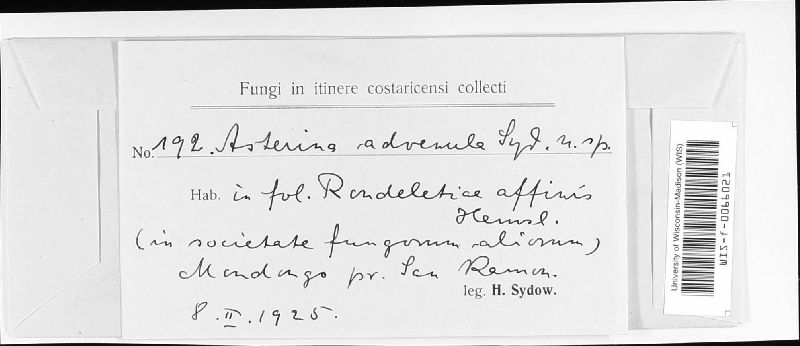 Fungi in itinere costaricensi collecti
No. 192. Asterina advenula Syd. n. sp.
Hab. in fol. Rondeletiae affinis
Hemsl.
(in societate fungorum aliorum)
Mondongo pr. San Ramon.
leg. H. Sydow.
8. II. 1925.
University of Wisconsin-Madison (WIS)
WIS-f-0066021